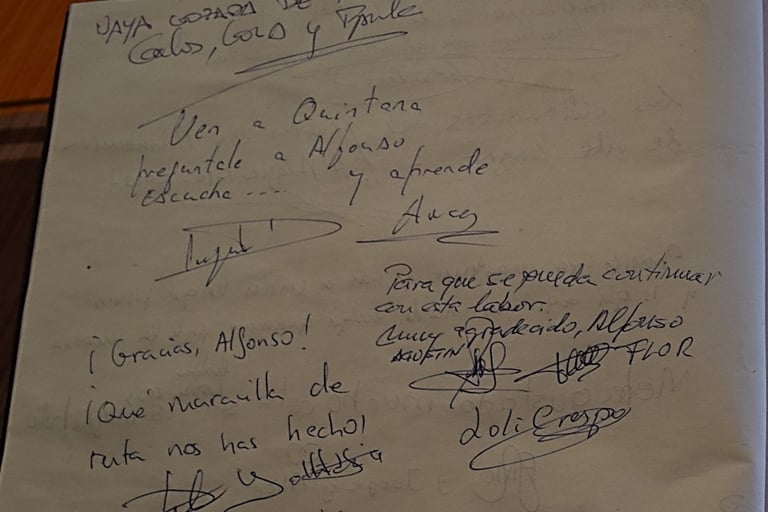 VAYA GOZADA DE
Carlos, Loro y Paula
Ven a Quintana
preguntale a Alfonso
escucha .... y aprende
Para que se pueda continuar
con esta labor.
Muy agradecido, Alfonso
AGUSTIN FLOR
Loli Crespo
¡Gracias, Alfonso!
¡Qué maravilla de
ruta nos has hecho!